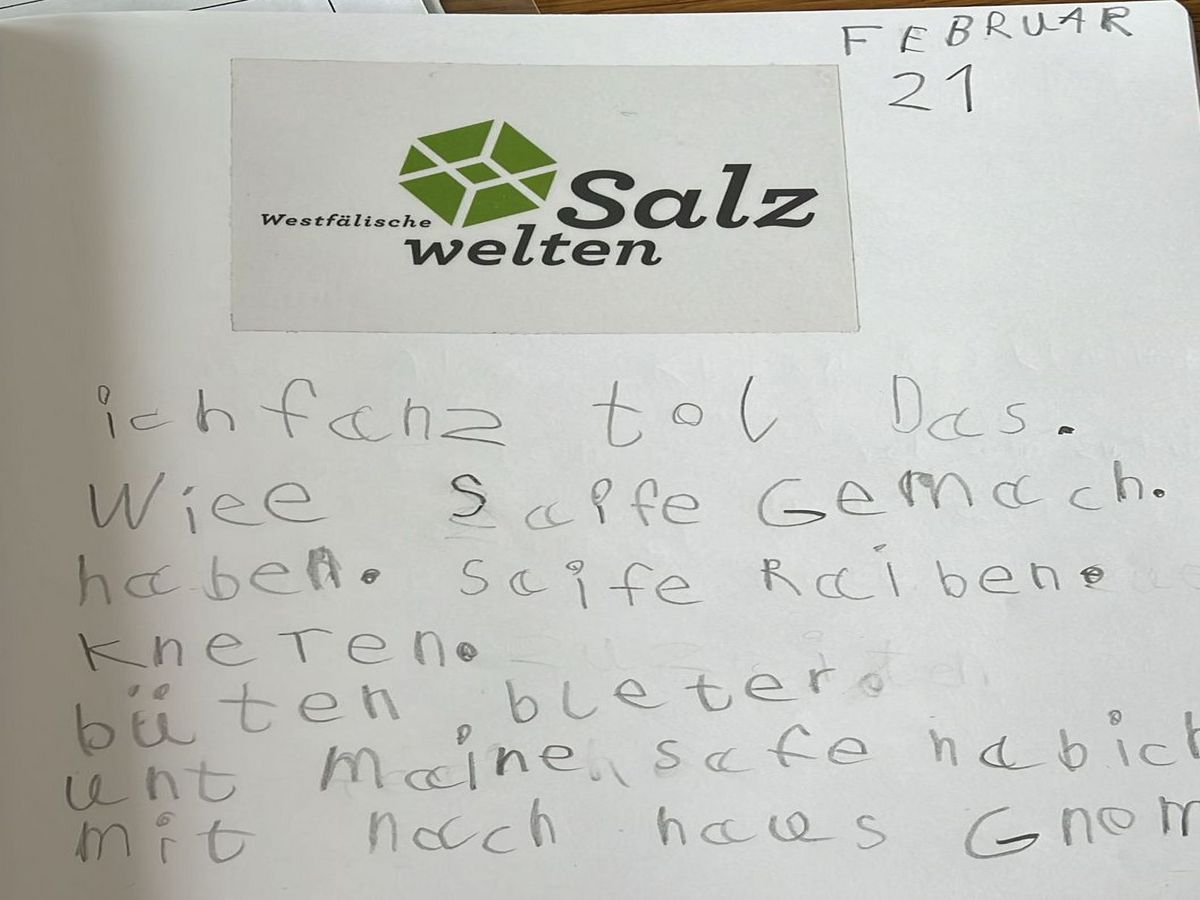 FEBRUAR
21
Westfälische Salz
welten
ich fanz tol Das.
Wiee Saife Gemach.
haben. Saife Raiben.
kneten.
büten bleter.
unt Maine safe habich
mit nach haus Gnom